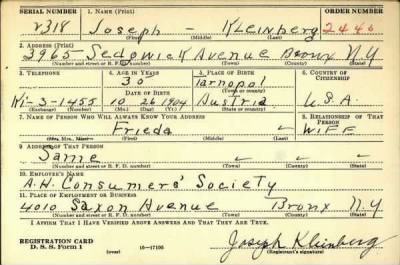 SERIAL NUMBER 1. NAME (Print) ORDER NUMBER
Joseph - Kleinberg 2440
(First) (Middle) (Last)
2. ADDRESS (Print)
3965 - Sedgwick Avenue Bronx N.Y
(Number and street or R. F. D. number) (Town) (County) (State)
3. TELEPHONE 4. AGE IN YEARS 5. PLACE OF BIRTH 6. COUNTRY OF CITIZENSHIP
Tarnopol
(Town or county)
DATE OF BIRTH
Ki-3-1455 10 26 1904 Austria U.S.A.
(Exchange) (Number) (Mo.) (Day) (Yr.) (State or country)
7. NAME OF PERSON WHO WILL ALWAYS KNOW YOUR ADDRESS 8. RELATIONSHIP OF THAT PERSON
Frieda WIFE
(Mr., Mrs., Miss) (First) (Middle) (Last)
9. ADDRESS OF THAT PERSON
Same
(Number and street or R. F. D. number) (Town) (County) (State)
10. EMPLOYER'S NAME
A.H. Consumers' Society
11. PLACE OF EMPLOYMENT OR BUSINESS
4010 Saxon Avenue Bronx N.Y
(Number and street or R. F. D. number) (Town) (County) (State)
I AFFIRM THAT I HAVE VERIFIED ABOVE ANSWERS AND THAT THEY ARE TRUE.
REGISTRATION CARD
D. S. S. Form 1 16-17105
Joseph Kleinberg
(Registrant's signature)